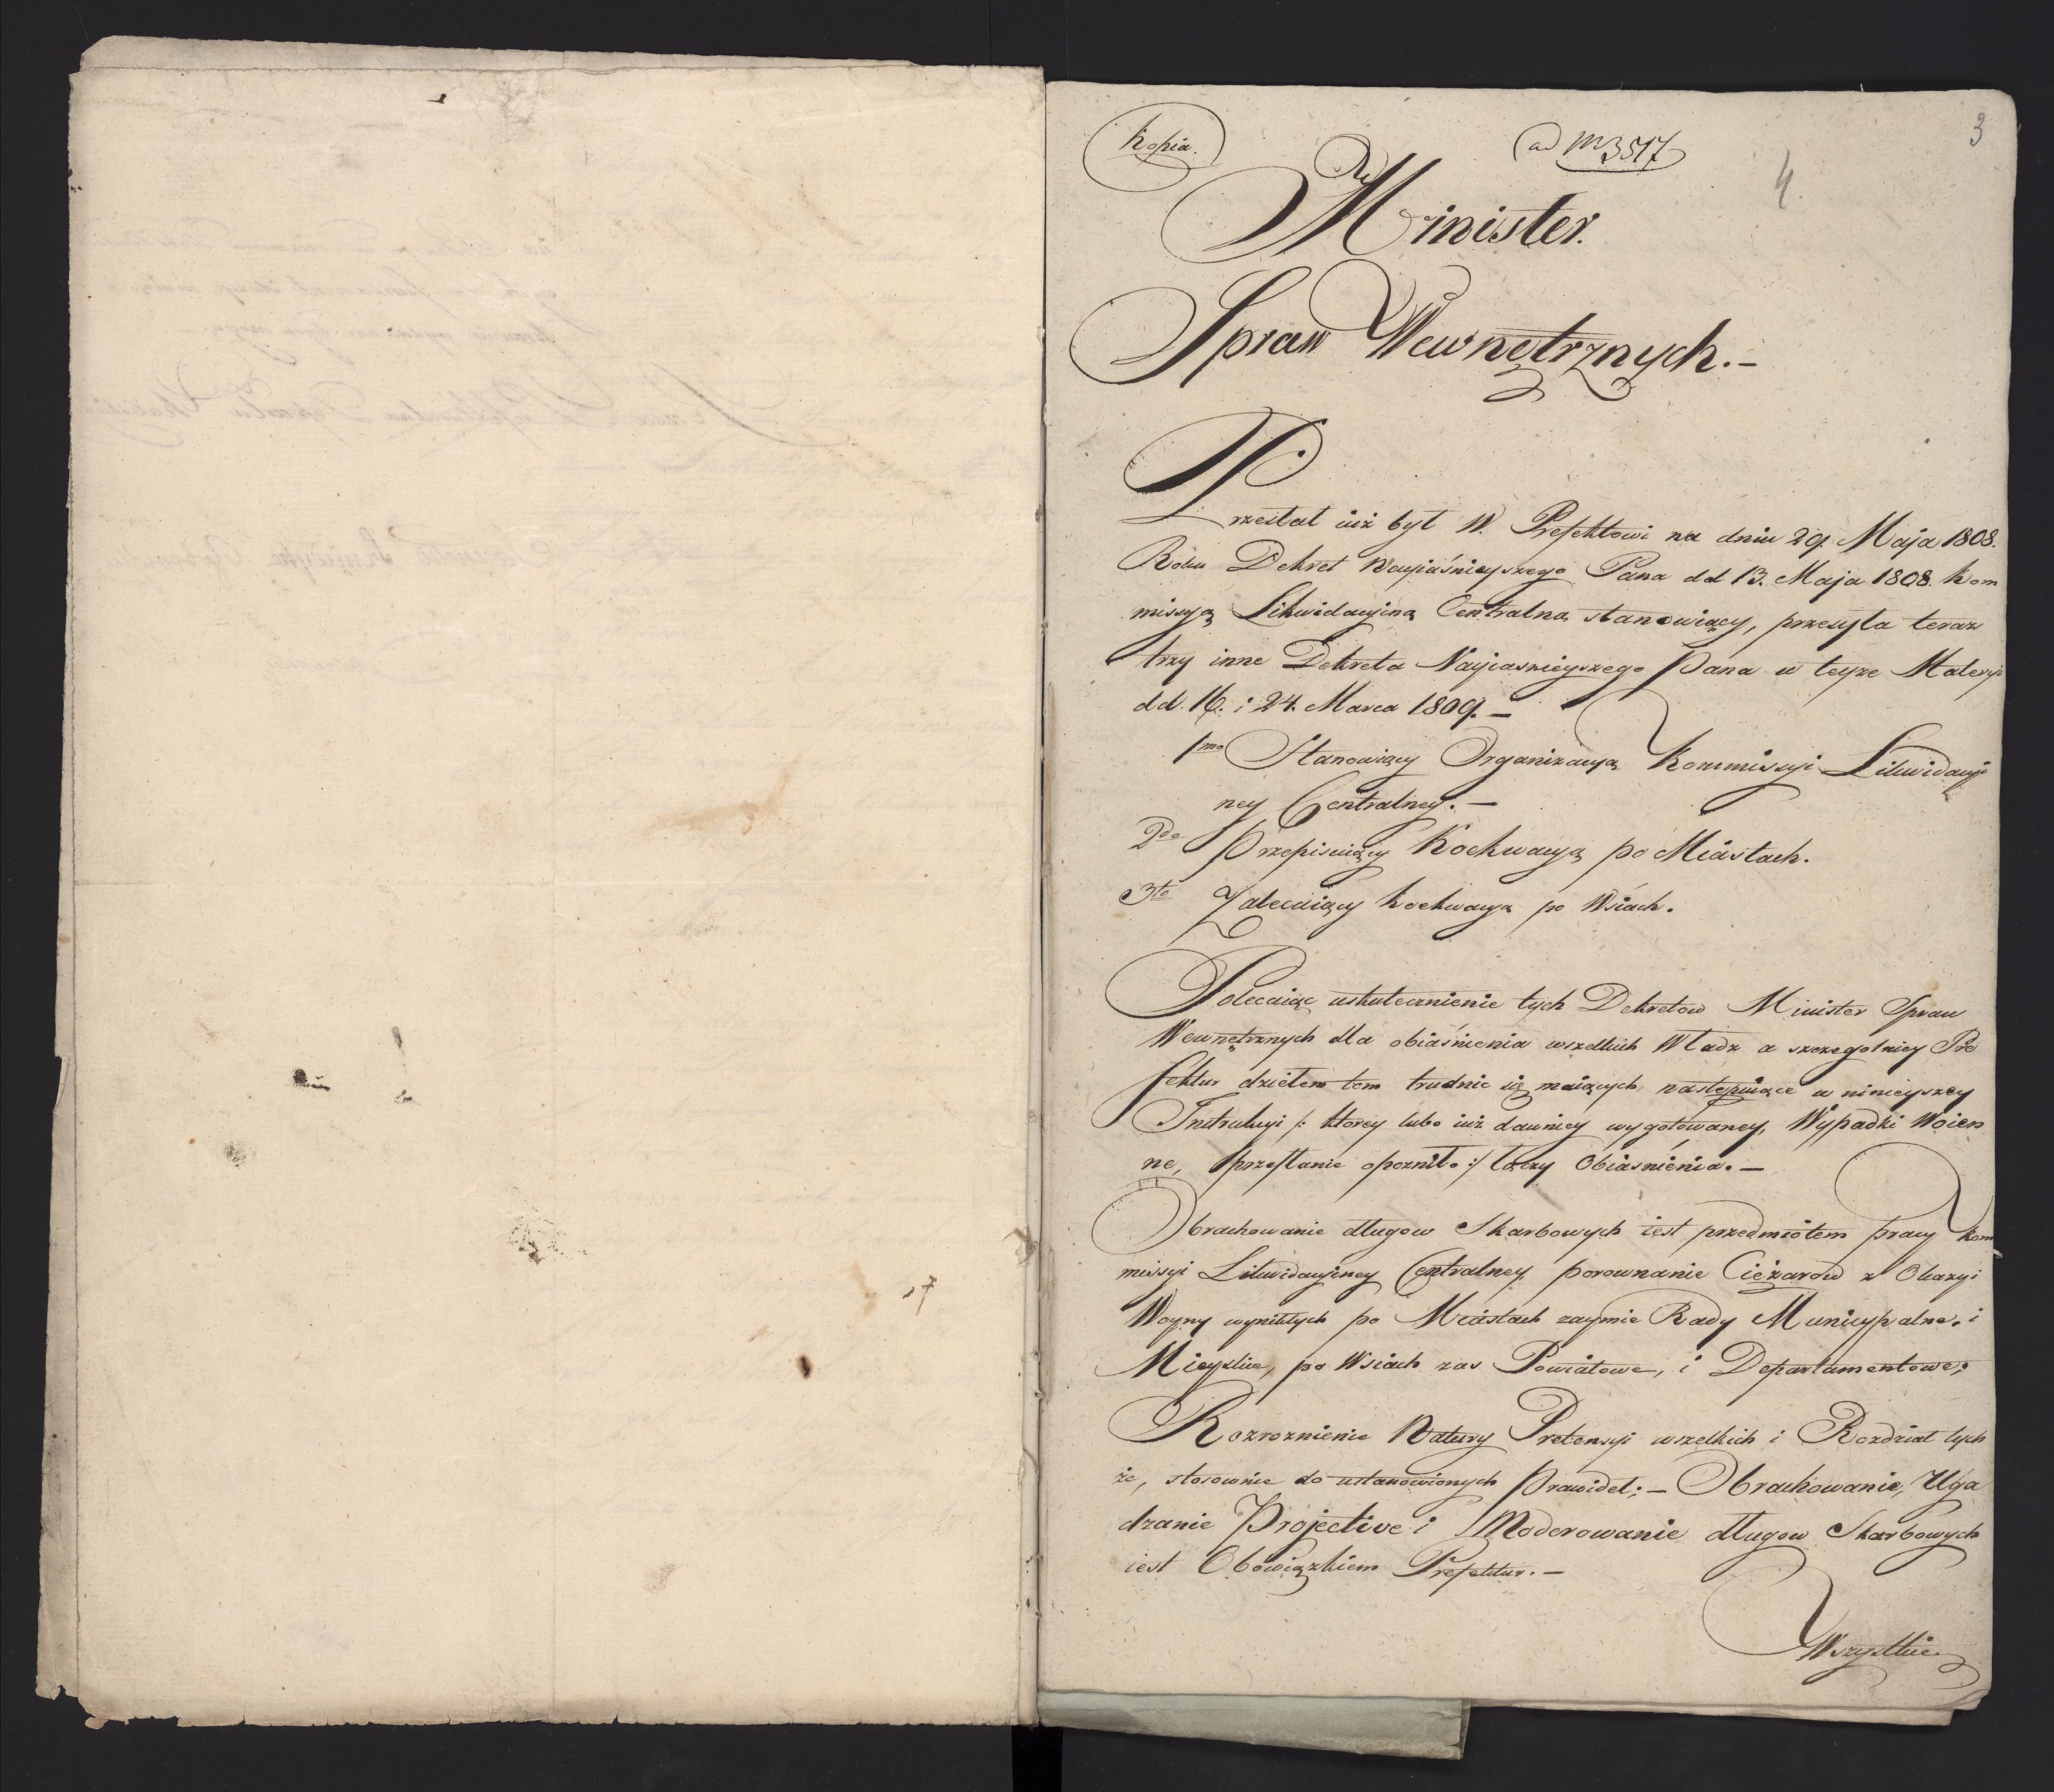 Kopia.
ad Nr 3517
3
4.
Minister.
Spraw Wewnętrznych.-
Przesłał iuż był W. Prefektowi na dniu 29. Maja 1808.
Roku Dekret Nayiaśnieyszego Pana dd 13. Maja 1808. Kom
missyą Likwidacyiną Centralną stanowiący, przesyła teraz
trzy inne Dekreta Nayiasnieyszego Pana w teyże Materyi
dd. 16. i 24. Marca 1809.-
1mo Stanowiący Organizacyą Kommissyi Likwidacyi
ney Centralney.-
2do Przepisuiący Koekwacyą po Miastach.
3tio Zalecaiący Koekwacyą po Wsiach.
Polecaiąc uskutecznienie tych Dekretow Minister Spraw
Wewnętrznych dla obiaśnienia wszelkich Władz a szczegolniey Pre
fektur dziełem tem trudnic się maiących następuiące w ninieyszey
Instrukcyi /: ktorey lubo iuż dawniey wygotowaney, Wypadki Woien
ne, przesłanie opozniło :/ łączy Obiasnienia.-
Obrachowanie długow Skarbowych iest przedmiotem pracy Kom
missyi Likwidacyiney Centralney, porownanie Ciężarow z Okazyi
Woyny wynikłych po Miastach zaymie Rady Municypalne i
Mieyskie, po Wsiach zas Powiatowe, i Departamentowe;
Rozroznienie Natury Pretensyi wszelkich i Rozdział tych
że, stosownie do ustanowionych Prawideł;- Obrachowanie, Uga
dzanie Projective i Moderowanie długow Skarbowych
iest Obowiązkiem Prefektur.-
Wszystkie